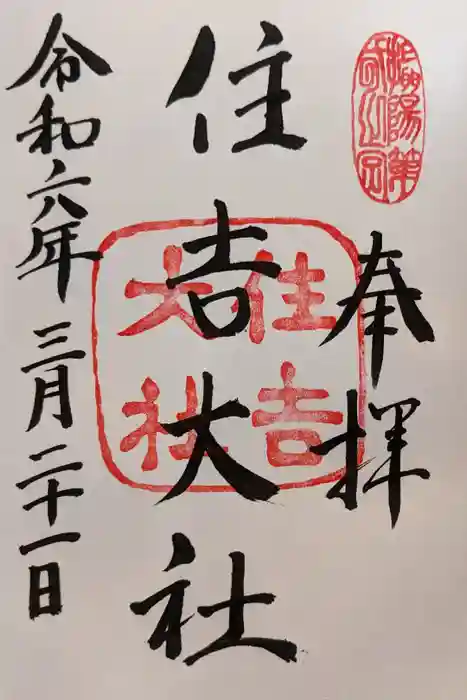 奉拝
住吉大社
令和六年 三月二十一日
住吉
大社